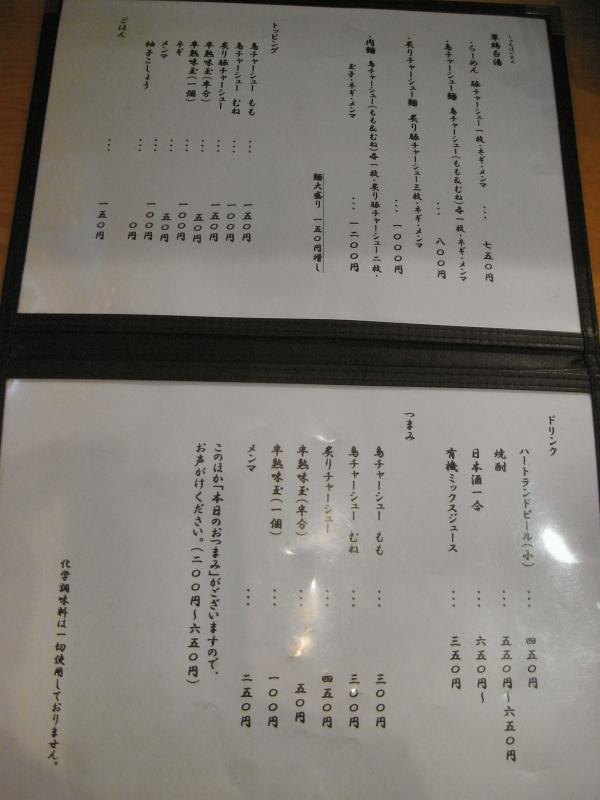 しゃもぱいたん
軍鶏白湯
・らーめん 豚チャーシュー一枚・ネギ・メンマ ・・・ 七五〇円
・鳥チャーシュー麺 鳥チャーシュー(もも&むね)各一枚・ネギ・メンマ
・・・ 八〇〇円
・炙りチャーシュー麺 炙り豚チャーシュー三枚・ネギ・メンマ
・・・ 一〇〇〇円
・肉麺 鳥チャーシュー(もも&むね)各一枚・炙り豚チャーシュー二枚・
玉子・ネギ・メンマ ・・・ 一二〇〇円
麺大盛り 一五〇円増し
トッピング
鳥チャーシュー もも ・・・ 一五〇円
鳥チャーシュー むね ・・・ 一〇〇円
炙り豚チャーシュー ・・・ 一五〇円
半熟味玉(半分) ・・・ 五〇円
半熟味玉(一個) ・・・ 一〇〇円
ネギ ・・・ 五〇円
メンマ ・・・ 一〇〇円
柚子こしょう ・・・ 〇円
ごはん ・・・ 一五〇円
ドリンク
ハートランドビール(小) ・・・ 四五〇円
焼酎 ・・・ 五五〇円〜六五〇円
日本酒一合 ・・・ 六五〇円〜
有機ミックスジュース ・・・ 三五〇円
つまみ
鳥チャーシュー もも ・・・ 三〇〇円
鳥チャーシュー むね ・・・ 三〇〇円
炙りチャーシュー ・・・ 四五〇円
半熟味玉(半分) ・・・ 五〇円
半熟味玉(一個) ・・・ 一〇〇円
メンマ ・・・ 二五〇円
このほか「本日のおつまみ」がございますので、
お声がけください。(二〇〇円〜六五〇円)
化学調味料は一切使用しておりません。